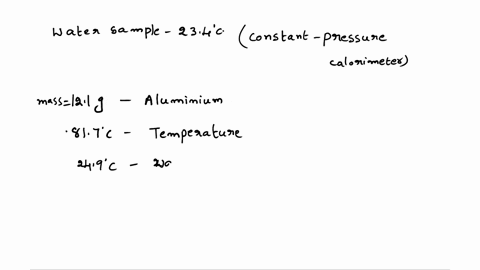 Water sample - 23.4°c (constant-pressure
calorimeter)
mass=12.1 g - Aluminium
.81.7°c - Temperature
24.9°c -